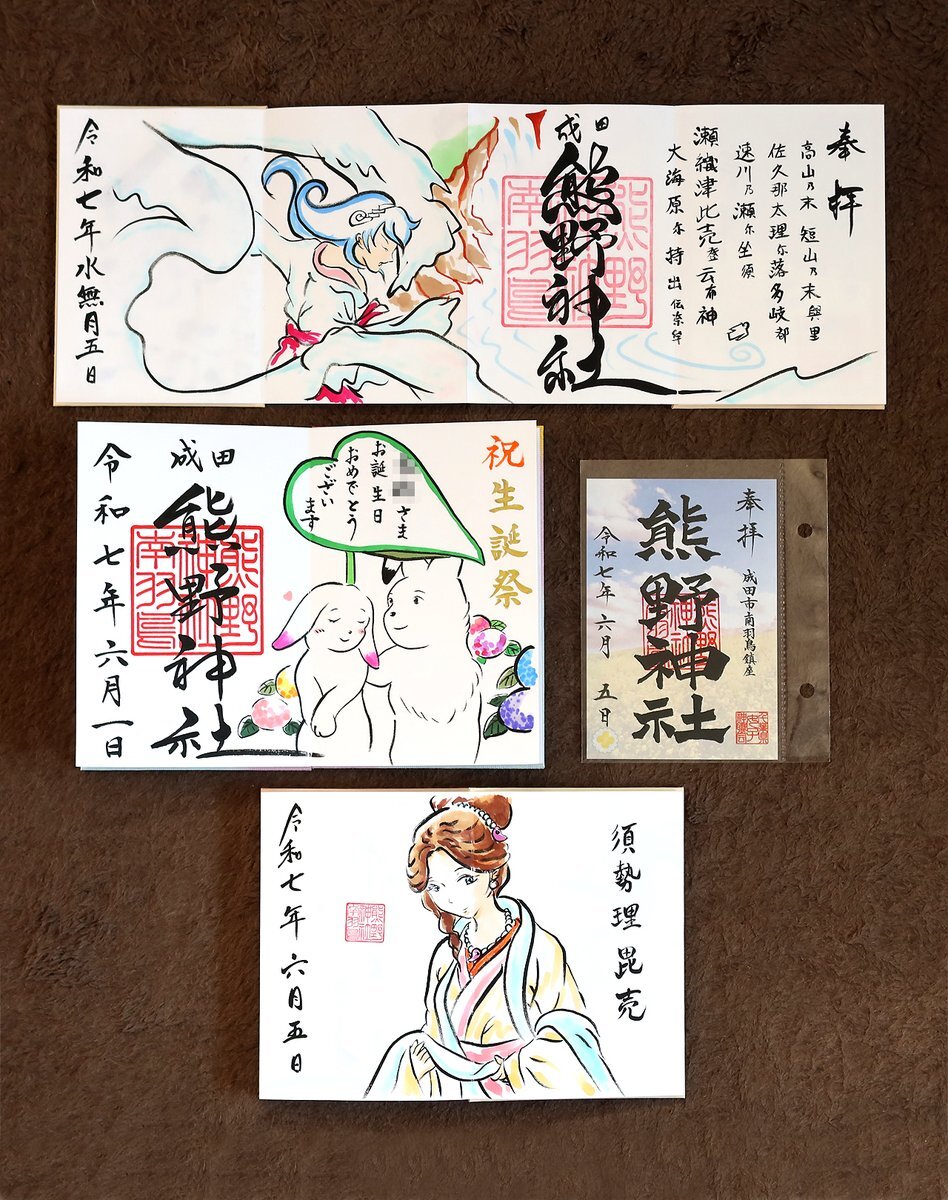 奉拝
高山乃末 短山乃末與里
佐久那太理尓落多岐都
速川乃瀬尓坐須
瀬織津比売登云布神
大海原尓持出伝奈牟
成田
熊野神社
令和七年水無月五日
祝生誕祭
さま
お誕生日
おめでとう
ござい
ます
成田
熊野神社
南羽鳥
令和七年六月一日
奉拝
成田市南羽鳥鎮座
熊野神社
令和七年六月五日
須勢理毘売
令和七年六月五日